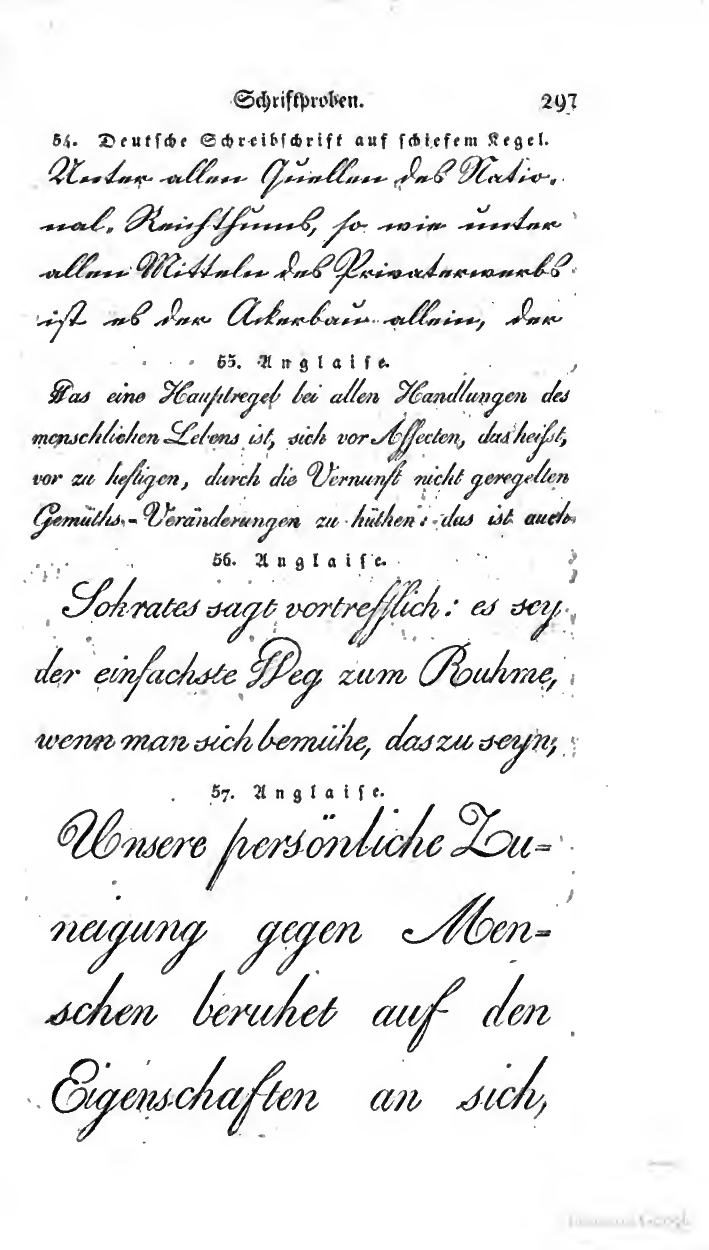 Schriftproben. 297
54. Deutsche Schreibschrift auf schiefem Kegel.
Unter allen Quellen des Natio-
nal-Reichthums, so wie unter
allen Mitteln des Privaterwerbs
ist es der Ackerbau allein, der
55. Anglaise.
Das eine Hauptregel bei allen Handlungen des
menschlichen Lebens ist, sich vor Affecten, das heißt,
vor zu heftigen, durch die Vernunft nicht geregelten
Gemüths-Veränderungen zu hüthen: das ist auch
56. Anglaise.
Sokrates sagt vortrefflich: es sey
der einfachste Weg zum Ruhme,
wenn man sich bemühe, das zu seyn,
57. Anglaise.
Unsere persönliche Zu=
neigung gegen Men=
schen beruhet auf den
Eigenschaften an sich,
Google